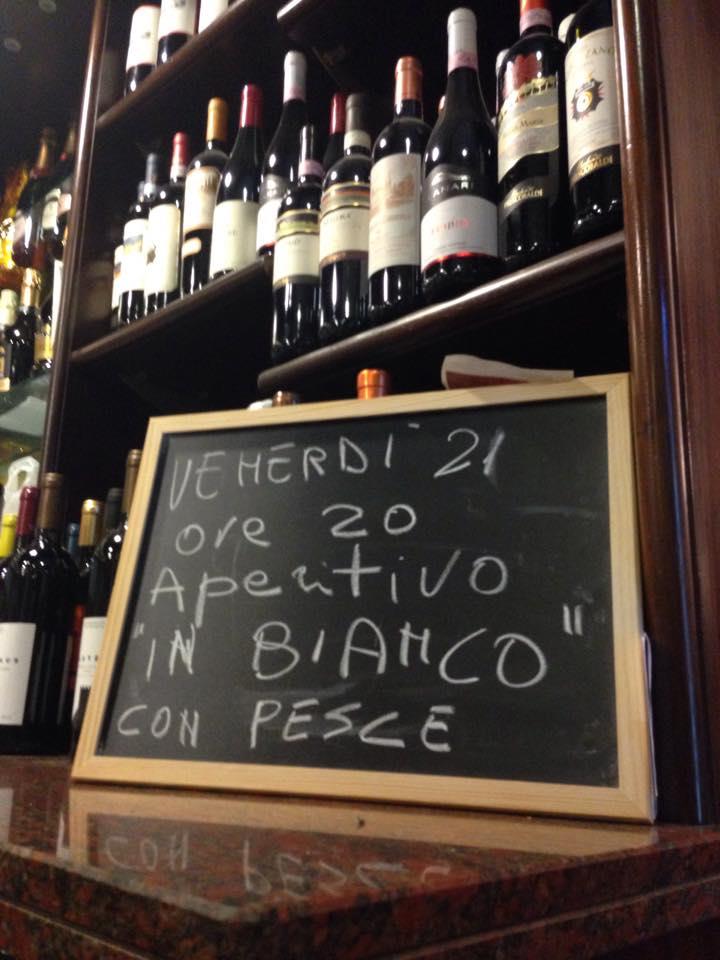 ANARI
VENERDI' 21
ore 20
Aperitivo
"IN BIANCO"
CON PESCE